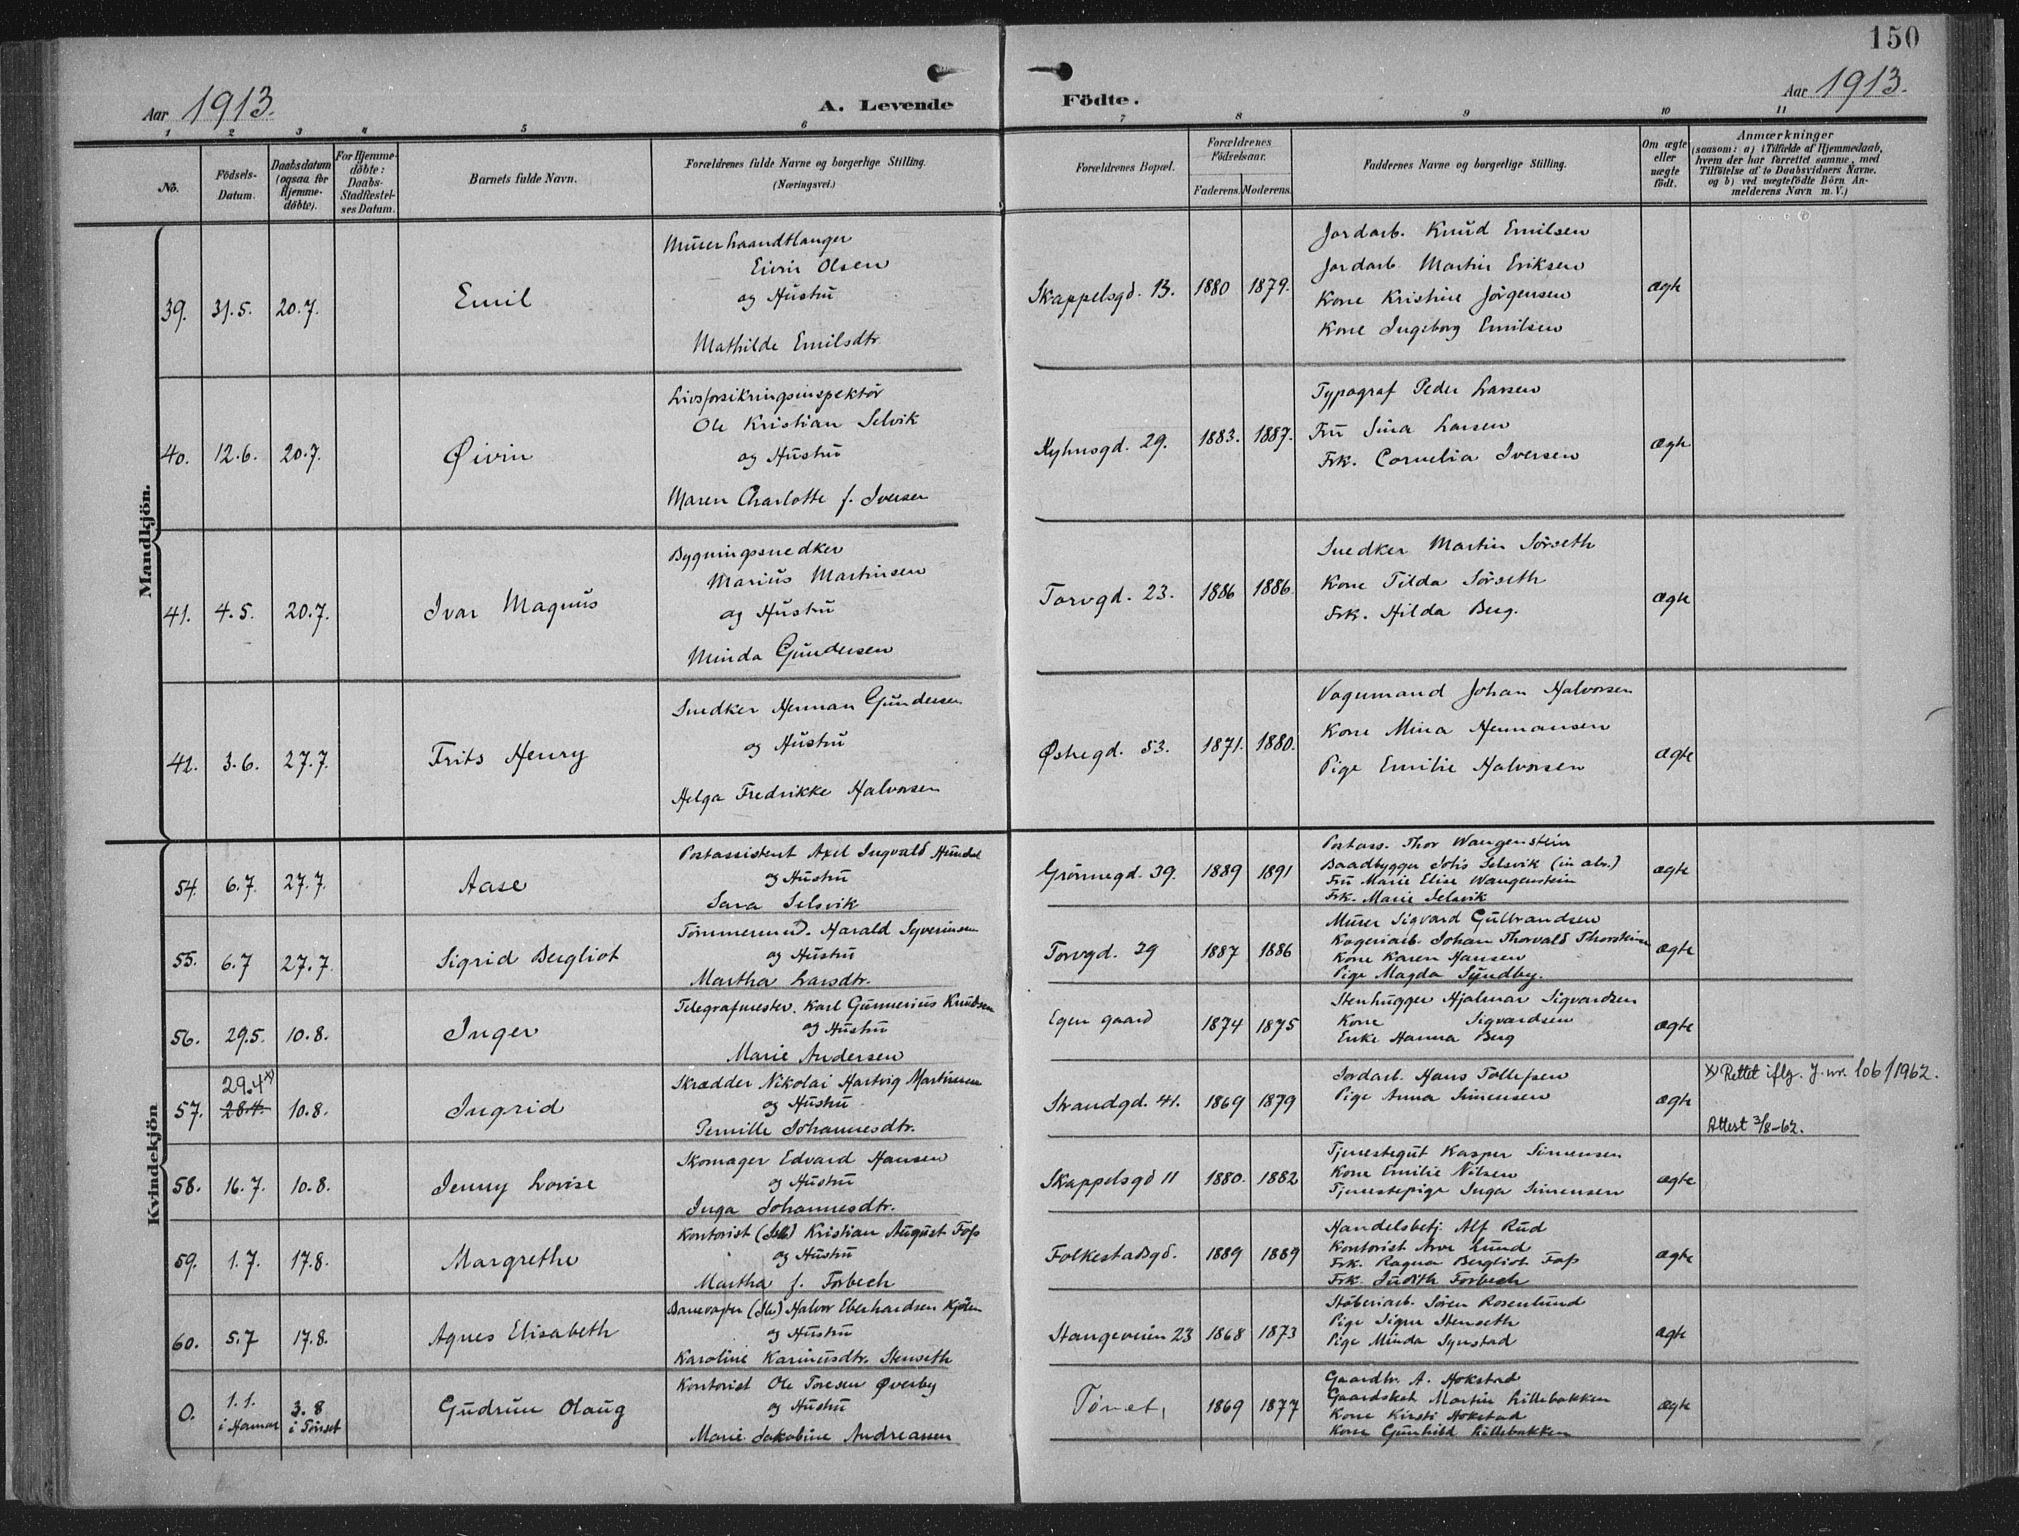 150
Aar 1913.
A. Levende Födte.
Aar 1913.
1 2 3 4 5 6 7 8 9 10 11
No.
Födsels-Datum.
Daabsdatum (ogsaa for Hjemme-döbte).
For Hjemme-döbte: Daabs-Stadfæstel-ses Datum.
Barnets fulde Navn.
Forældrenes fulde Navne og borgerlige Stilling. (Næringsvei.)
Forældrenes Bopæl.
Forældrenes Födselsaar.
Faderens. Moderens.
Faddernes Navne og borgerlige Stilling.
Om ægte eller uægte födt.
Anmærkninger
(saasom: a) i Tilfælde af Hjemmedaab,
hvem der har forrettet samme, med
Tilföielse af to Daabsvidners Navne,
og b) ved uægtefödte Börn An-
melderens Navn m. V.)
Mandkjön.
39. 31.5. 20.7. Emil
Murerhaandtlanger
Eivin Olsen
og Hustru
Mathilde Emilsdtr.
Skappelsgd. 13. 1880 1879.
Jordarb. Knud Emilsen
Jordarb. Martin Eriksen
Kone Kristine Jörgensen
Kone Ingeborg Emilsen
ægte
40. 12.6. 20.7. Øivin
Livsforsikringsinspektör
Ole Kristian Selvik
og Hustru
Maren Charlotte f. Iversen
Kyhnsgd. 29. 1883. 1887.
Typograf Peder Larsen
Fru Sina Larsen
Frk. Cornelia Iversen
ægte
41. 4.5. 20.7. Ivar Magnus
Bygningssnedker
Marius Martinsen
og Hustru
Minda Gundersen
Torvgd. 23. 1886 1886.
Snedker Martin Sörseth
Kone Tilda Sörseth
Frk. Hilda Berg.
ægte
42. 3.6. 27.7. Frits Henry
Snedker Herman Gundersen
og Hustru
Helga Fredrikke Halvorsen
Østregd. 53. 1871. 1880.
Vognmand Johan Halvorsen
Kone Mina Hermansen
Pige Emilie Halvorsen
ægte
Kvindekjön
54. 6.7. 27.7. Aase
Postassistent Axel Ingvald Hundal
og Hustru
Sara Selsvik
Grönnegd. 39. 1889 1891
Postass. Thor Wangenstein
Baadbygger Johs Selsvik (in abs.)
Fru Marie Elise Wangenstein
Frk. Marie Selsvik
ægte
55. 6.7 27.7. Sigrid Bergliot
Tømmermd. Harald Syverinsen
og Hustru
Martha Larsdtr.
Torvgd. 29 1887 1886
Murer Sigvard Gulbrandsen
Johan Thorvald
Kone Karen Hansen
Pige Magda Sundby.
ægte
56. 29.5. 10.8. Inger
Telegrafmester. Karl Gunnerius Knudsen
og Hustru
Marie Andersen
Egen gaard 1874 1875
Stenhugger Hjalmar Sigvardsen
Kone Sigvardsen
Enke Hanna Berg
ægte
57. 29.4 x) 28.4. 10.8. Ingrid
Skrædder Nikolai Hartvig Martinsen
og Hustru
Pernille Johannesdtr.
Strandgd. 41. 1869 1879
Jordarb. Hans Tollefsen
Pige Anna Simensen
ægte
x) Rettet iflg. J.nr. 106/1962.
Attest 3/8-62.
58. 16.7. 10.8. Jenny Lovise
Skomager Edvard Hansen
og Hustru
Inga Johannesdtr.
Skappelsgd 11 1880. 1882
Tjenestegut Kasper Simensen
Kone Emilie Nilsen
Tjenestepige Inga Simensen
ægte
59. 1.7. 17.8. Margrethe
Kontorist (Jb) Kristian August Foss
og Hustru
Martha f. Forbech
Folkestadsgd. 1889 1889
Handelsbetj. Alf Rud
Kontorist Arve Lund
Frk. Ragna Bergliot Foss
Frk. Judith Forbech
ægte
60. 5.7 17.8. Agnes Elisabeth
Banevogter (Jb) Halvor Eberhardsen Kjölen
og Hustru
Karoline Karinusdtr. Stenseth
Stangeveien 23 1868 1873
Stöberiarb. Sören Rosenlund
Pige Signe Stenseth
Pige Minda Synstad
ægte
0. 1.1. i Hamar 3.8 i Tönset Gudrun Olaug
Kontorist Ole Toresen Øverby
og Hustru
Marie Jakobine Andreassen
Tönset, 1869 1877
Gaardbr. A. Hokstad
Martin Lillebakken
Kone Kirsti Hokstad
Kone Gunhild Lillebakken
ægte